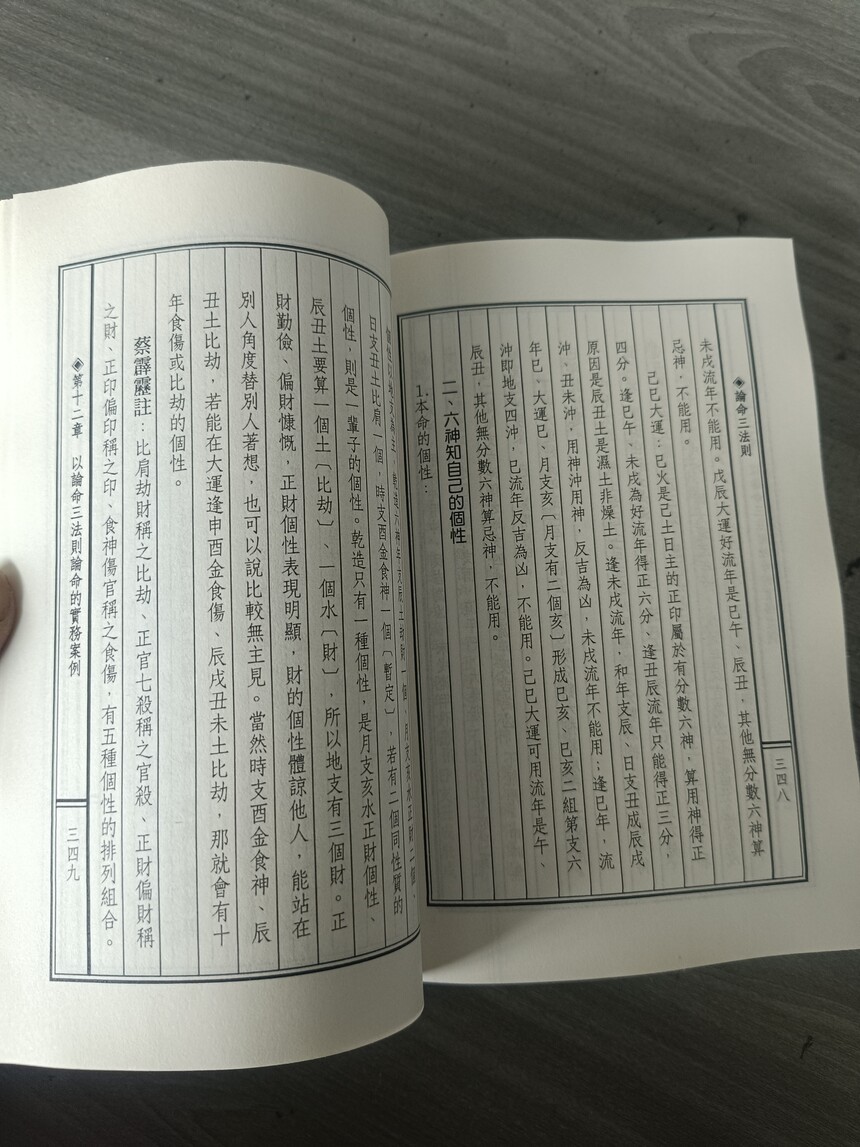 ◈論命三法則
三四八
未戌流年不能用。戊辰大運好流年是巳午、辰丑，其他無分數六神算
忌神，不能用。
己巳大運：巳火是己土日主的正印屬於有分數六神，算用神得正
四分。逢巳午、未戌為好流年得正六分、逢丑辰流年只能得正三分，
原因是辰丑土是濕土非燥土。逢未戌流年，和年支辰、日支丑成辰戌
沖、丑未沖，用神沖用神，反吉為凶，未戌流年不能用；逢巳年，流
年巳、大運巳、月支亥〔月支有二個亥〕形成巳亥、巳亥二組第支六
沖即地支四沖，巳流年反吉為凶，不能用。己巳大運可用流年是午、
辰丑，其他無分數六神算忌神，不能用。
二、六神知自己的個性
1.本命的個性：
日支丑土比肩一個，時支酉金食神一個〔暫定〕，若有二個同性質的
個性，則是一輩子的個性。乾造只有一種個性，是月支亥水正財個性、
辰丑土要算一個土〔比劫〕、一個水〔財〕，所以地支有三個財。正
財勤儉、偏財慷慨，正財個性表現明顯，財的個性體諒他人，能站在
別人角度替別人著想，也可以說比較無主見。當然時支酉金食神、辰
丑土比劫，若能在大運逢申酉金食傷、辰戌丑未土比劫，那就會有十
年食傷或比劫的個性。
蔡霹靂註：比肩劫財稱之比劫、正官七殺稱之官殺、正財偏財稱
之財、正印偏印稱之印、食神傷官稱之食傷，有五種個性的排列組合。
◈第十二章　以論命三法則論命的實務案例
三四九